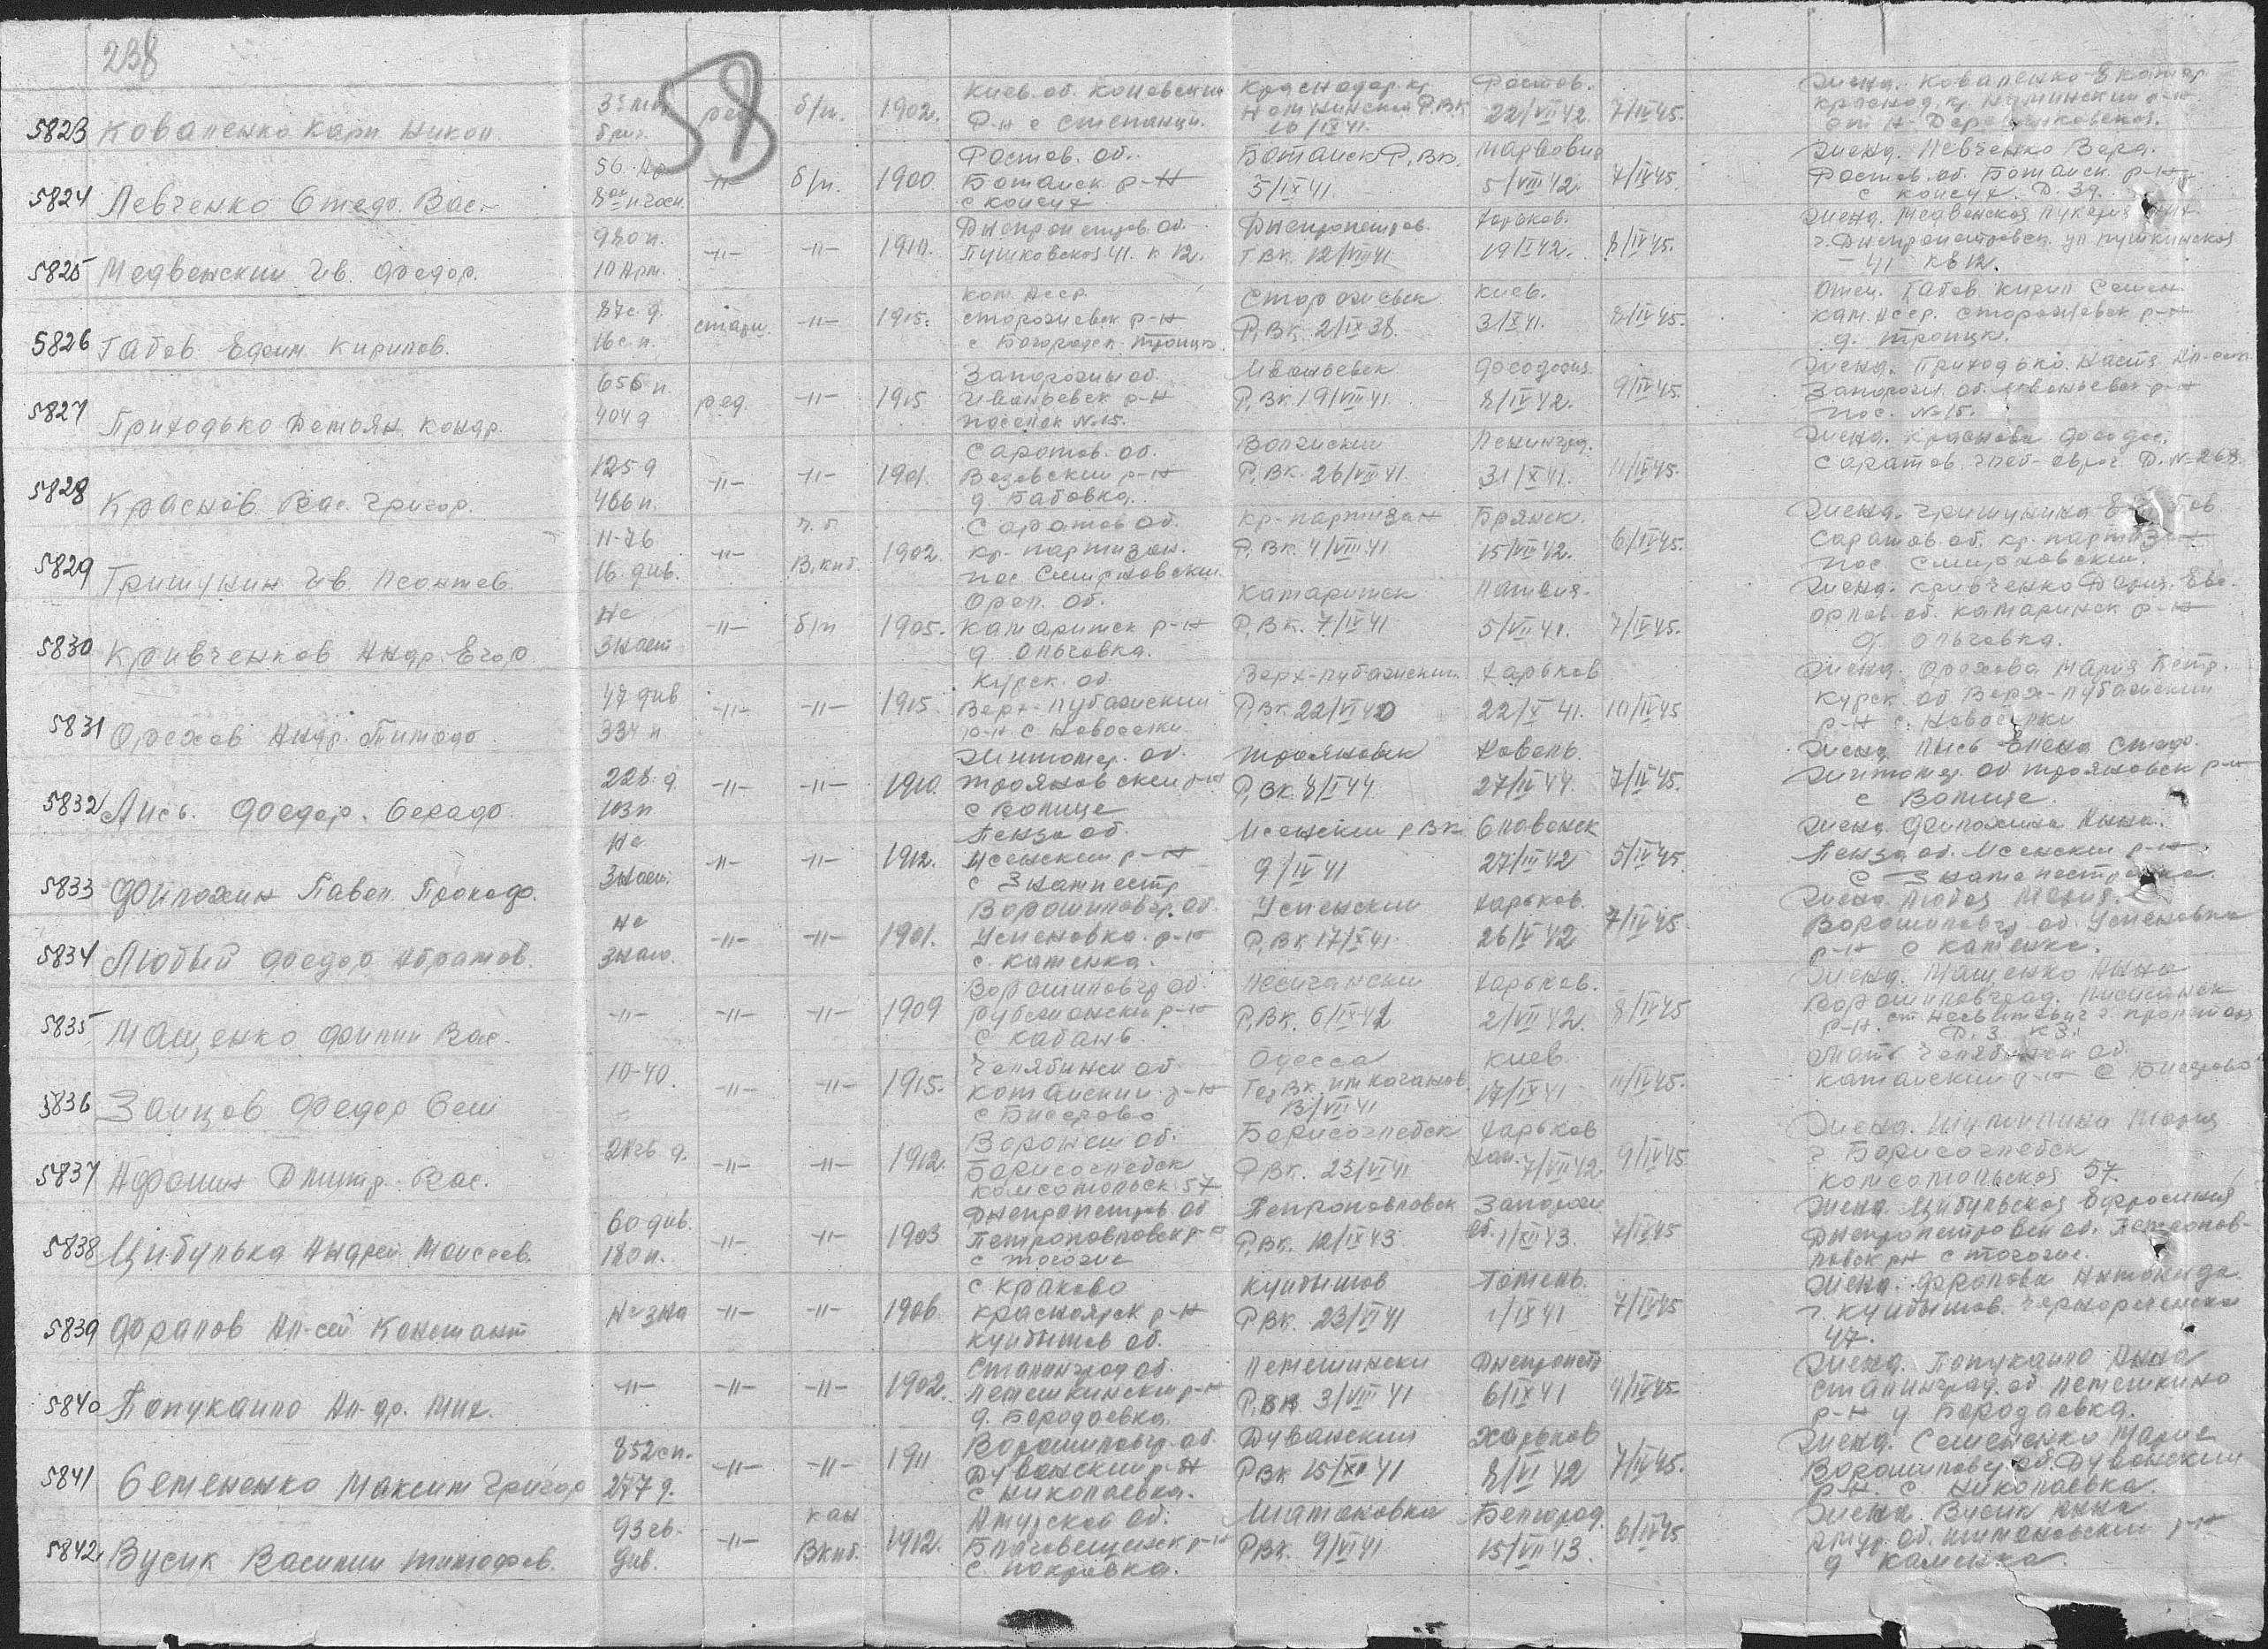 238
58
5823 Коваленко Карп Никол. б/п. 1902. Киев. об. Коневский Р-н с Степанци. Краснодар. кр. Р.ВК 10/IX 41. Ростов. 22/VII 42. 7/IV 45. Жена. Коваленко Екатер. краснод. кр.
5824 Левченко Стефо. Вас. -"- б/п. 1900 Ростов. об. Батайск р-н с Койсуг Батайск Р.ВК. 5/IX 41 5/VIII 42. 7/IV 45. Жена. Левченко Вера. Ростов. об. Батайск. р-н с Койсуг. Д. 39.
5825 Медвенский Ив. Федор. 980 п. -"- -"- 1910. Днепропетров. об. Пушковская 41. к 12. Днепропетров. Г ВК. 12/VIII 41 Харьков. 19/V 42. 8/IV 45. Жена. Медвенская г. Днепропетровск. ул Пушкинская 41 кв 12.
5826 Габов Ефим Кирилов. 87 с. д. 16 с. п. старш. -"- 1915. Ком. Асср. Сторожевск р-н с Богородск. Троицк. Сторожевск Р.ВК. 2/IX 38. Киев. 3/X 41. 8/IV 45. Отец. Габов Кирил Семен. Ком. Асср. Сторожевск р-н д. Троицк.
5827 Приходько Демьян Кондр. 656 п. 404 д ряд -"- 1915 Запорожьи об. Иваньевск р-н поселок № 15. Иваньевск Р.ВК. 19/VIII 41 Феодосия 8/IV 42. 9/IV 45. Жена. Приходько. Настя Запорож. об. Иваньевск р-н пос. № 15.
5828 Краснов Вас. Григор. 125 д 466 п. -"- -"- 1901. Саратов. об. Вязовский р-н д. Бабовка. Волжский Р.ВК. 26/VII 41. Ленинград. 31/X 41. 11/IV 45. Жена. Краснова Феодос. Саратов. Д. № 268.
5829 Гришунин Ив. Леонтев. 11-76 16. див. -"- ч. б. В.кпб. 1902. Саратов об. Кр-партизан. пос Смирновский Кр-партизан Р.ВК. 4/VIII 41 Брянск 15/VIII 42. 6/IV 45. Жена. Гришунина Саратов. об. Кр. партизан пос. Смирновский.
5830 Кривченков Андр. Егор Не знает -"- б/п 1905. Орл. об. Камаритск р-н д Ольговка. Камаритск Р.ВК. 7/IV 41 Латвия. 5/VII 41. 7/IV 45. Жена. Кривченко Дария. Ево. Орлов. об. Камаринск р-н д. Ольговка.
5831 Орехов Андр. Тимофо 47 див 334 п -"- -"- 1915. Курск. об. Верх-Лубажский р-н с Новоселки Верх-Лубажский Р.ВК. 22/VI 40 Харьков 22/X 41. 10/IV 45 Жена. Орехова Мария Петр. Курск об Верх-Лубажский р-н с. Новоселки
5832 Лись. Федор. Серафо. 228 д 103 п -"- -"- 1910. Житомер. об. Трояновский р-н с Волице Трояновск Р.ВК. 8/I 44 Ковель. 27/IV 44. 7/IV 45. Жена Лись Елена Житомер. об Трояновск р-н с Волице.
5833 Филохин Павел Прокоф. Не знает. -"- -"- 1912. Пенза об. Исенский р-н с Знаменестр Исенский р ВК 9/IV 41 Славенск 27/III 42 5/IV 45 Жена. Филохина Анна. Пенза об. Исенский р-н
5834 Любый Федор Абрамов. Не знаю. -"- -"- 1901. Ворошиловгр. об. Успеновка. р-н с. Каменка. Успенский Р.ВК. 17/X 41. Харьков. 26/IV 42 7/IV 45. Жена Любая Мария. Ворошиловгр. об. Успеновка р-н с Каменке.
5835 Мащенко Филип Вас. -"- -"- -"- 1909 Ворошиловгр об. Рубежанский р-н с Кабань Лесичанский Р.ВК. 6/IX 42 Харьков. 2/VII 42. 8/IV 45 Жена. Мащенко Анна Ворошиловград. Лисичанск р-н. Д. 3. К 3.
5836 Зайцов Федор Сем 10-40. -"- -"- 1915. Челябинск об. Катайский р-н с Бисерово Одесса Гор ВК. им Коганов. 13/VII 41 Киев 17/IX 41 11/IV 45. Мать Челябинск об. Катайский р-н с Бисерово
5837 Афонин Дмитр. Вас. 2 гв д. -"- -"- 1912. Воронеж об. Борисоглебск Комсомольск 57 Борисоглебск РВК. 23/VI 41 Харьков 7/VII 42. 9/IV 45 Жена. Мария г Борисоглебск Комсомольская 57.
5838 Цибулька Андрей Моисеев. 60 див. 180 п. -"- -"- 1903 Днепропетров об Петропавловск р-н Петропавловск Р.ВК. 12/IX 43 Запорож об. 1/XII 43. 7/IV 45 Жена Цибульская Ефросиния Днепропетровск об. Петропавловск рн
5839 Фралов Ал-сей Констант Не зна -"- -"- 1906. с Краково Красноярск р-н Куйбышев об. Куйбышов РВК. 23/VI 41 1/IX 41 7/IV 45 Жена. Фролова Антонида г. Куйбышов. Чернореченская 47.
5840 Попукайло Ал-др. Мих. -"- -"- -"- 1902. Сталинград об. Лемешкинский р-н д. Бородаевка. Лемешински Р.ВК 3/VIII 41 Днепропетр 6/IX 41 4/IV 45 Жена. Попукайло Анна Сталинград. об Лемешкино р-н д Бородаевка.
5841 Семененко Максим Григор 852 сп. 277 д. -"- -"- 1911 Ворошиловгр. об. Дуванский р-н с Николаевка. Дуванский РВК 15/XII 41 Харьков 8/VI 42 7/IV 45. Жена. Семененко Марие Ворошиловгр. об. Дуванский р-н. с. Николаевка.
5842 Вусик Василий Тимофев. 93 гв. див. -"- кан ВКпб. 1912. Амурская об. Благовещенск р-н с. Покровка. Шимановка РВК. 9/VI 41 Белгород. 15/VII 43. 6/IV 45 Жена Вусик Анна Амур. об. Шимановский р-н д Каменка.